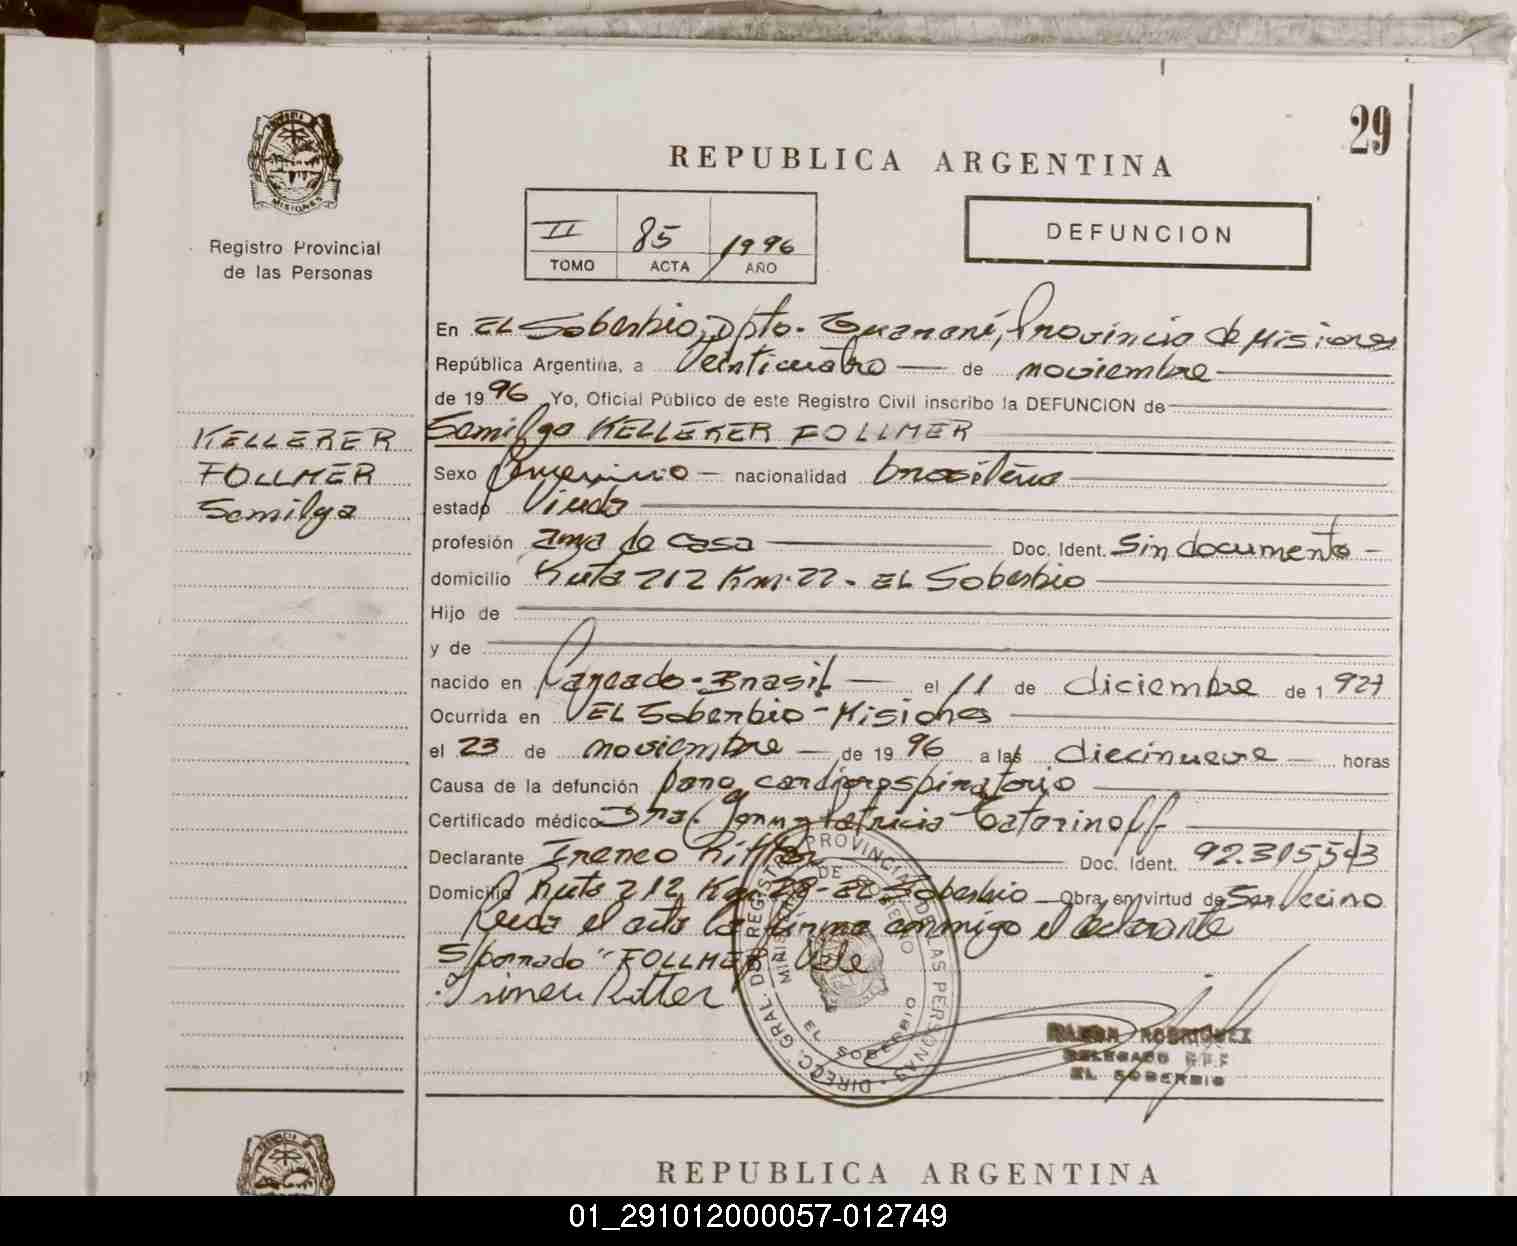 29
REPUBLICA ARGENTINA
MISIONES
Registro Provincial
de las Personas
II 85 1996
TOMO ACTA AÑO
DEFUNCION
En EL Soberbio, Dpto. Guaraní, Provincia de Misiones
República Argentina, a Veinticuatro de noviembre
de 1996 Yo, Oficial Público de este Registro Civil inscribo la DEFUNCION de
Semilga KELLERER FOLLMER
KELLERER
FOLLMER
Semilga
Sexo femenino nacionalidad brasileña
estado Viuda
profesión ama de casa Doc. Ident. Sin documento
domicilio Ruta 212 Km. 22 - EL Soberbio
Hijo de
y de
nacido en - Brasil el 11 de diciembre de 1927
Ocurrida en EL Soberbio - Misiones
el 23 de noviembre de 1996 a las diecinueve horas
Causa de la defunción Paro cardiorespiratorio
Certificado médico Dra. Jenny Patricia Catarinoff
Declarante Ireneo Ritter Doc. Ident. 92.315.543
Domicilio Ruta 212 Km 28 - EL Soberbio Obra en virtud de Ser Vecino
el acta la firma conmigo el declarante
S/borrado "FOLLMER" Vale
Irineu Ritter
DIRECC. GRAL. DE REGISTRO PROVINCIAL DE LAS PERSONAS
MINISTERIO DE GOBIERNO
EL SOBERBIO
RAMON RODRIGUEZ
DELEGADO R.P.P
EL SOBERBIO
REPUBLICA ARGENTINA
01_291012000057-012749